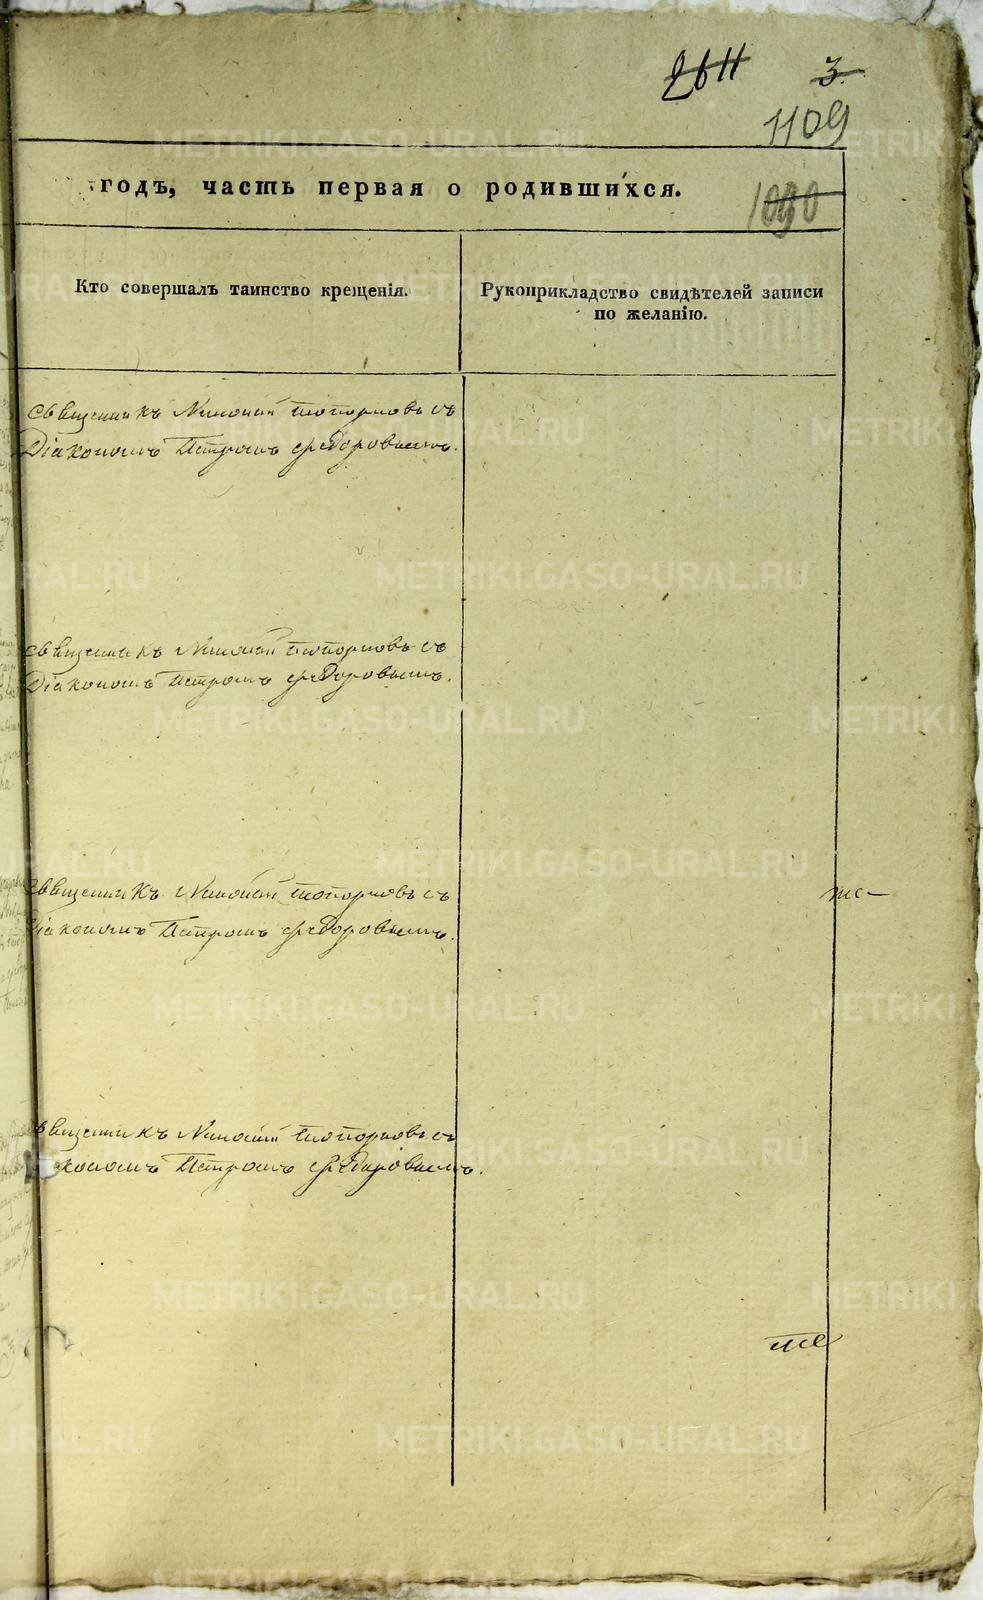 3
1109
годъ, часть первая о родившихся.
1090
Кто совершалъ таинство крещенія.
Рукоприкладство свидѣтелей записи
по желанію.
Священникъ Николай Топорковъ съ
Діакономъ Петромъ Ѳедоровымъ.
Священникъ Николай Топорковъ съ
Діакономъ Петромъ Ѳедоровымъ.
Священникъ Николай Топорковъ съ
Діакономъ Петромъ Ѳедоровымъ.
Священникъ Николай Топорковъ съ
кономъ Петромъ Ѳедоровымъ.
METRIKI.GASO-URAL.RU